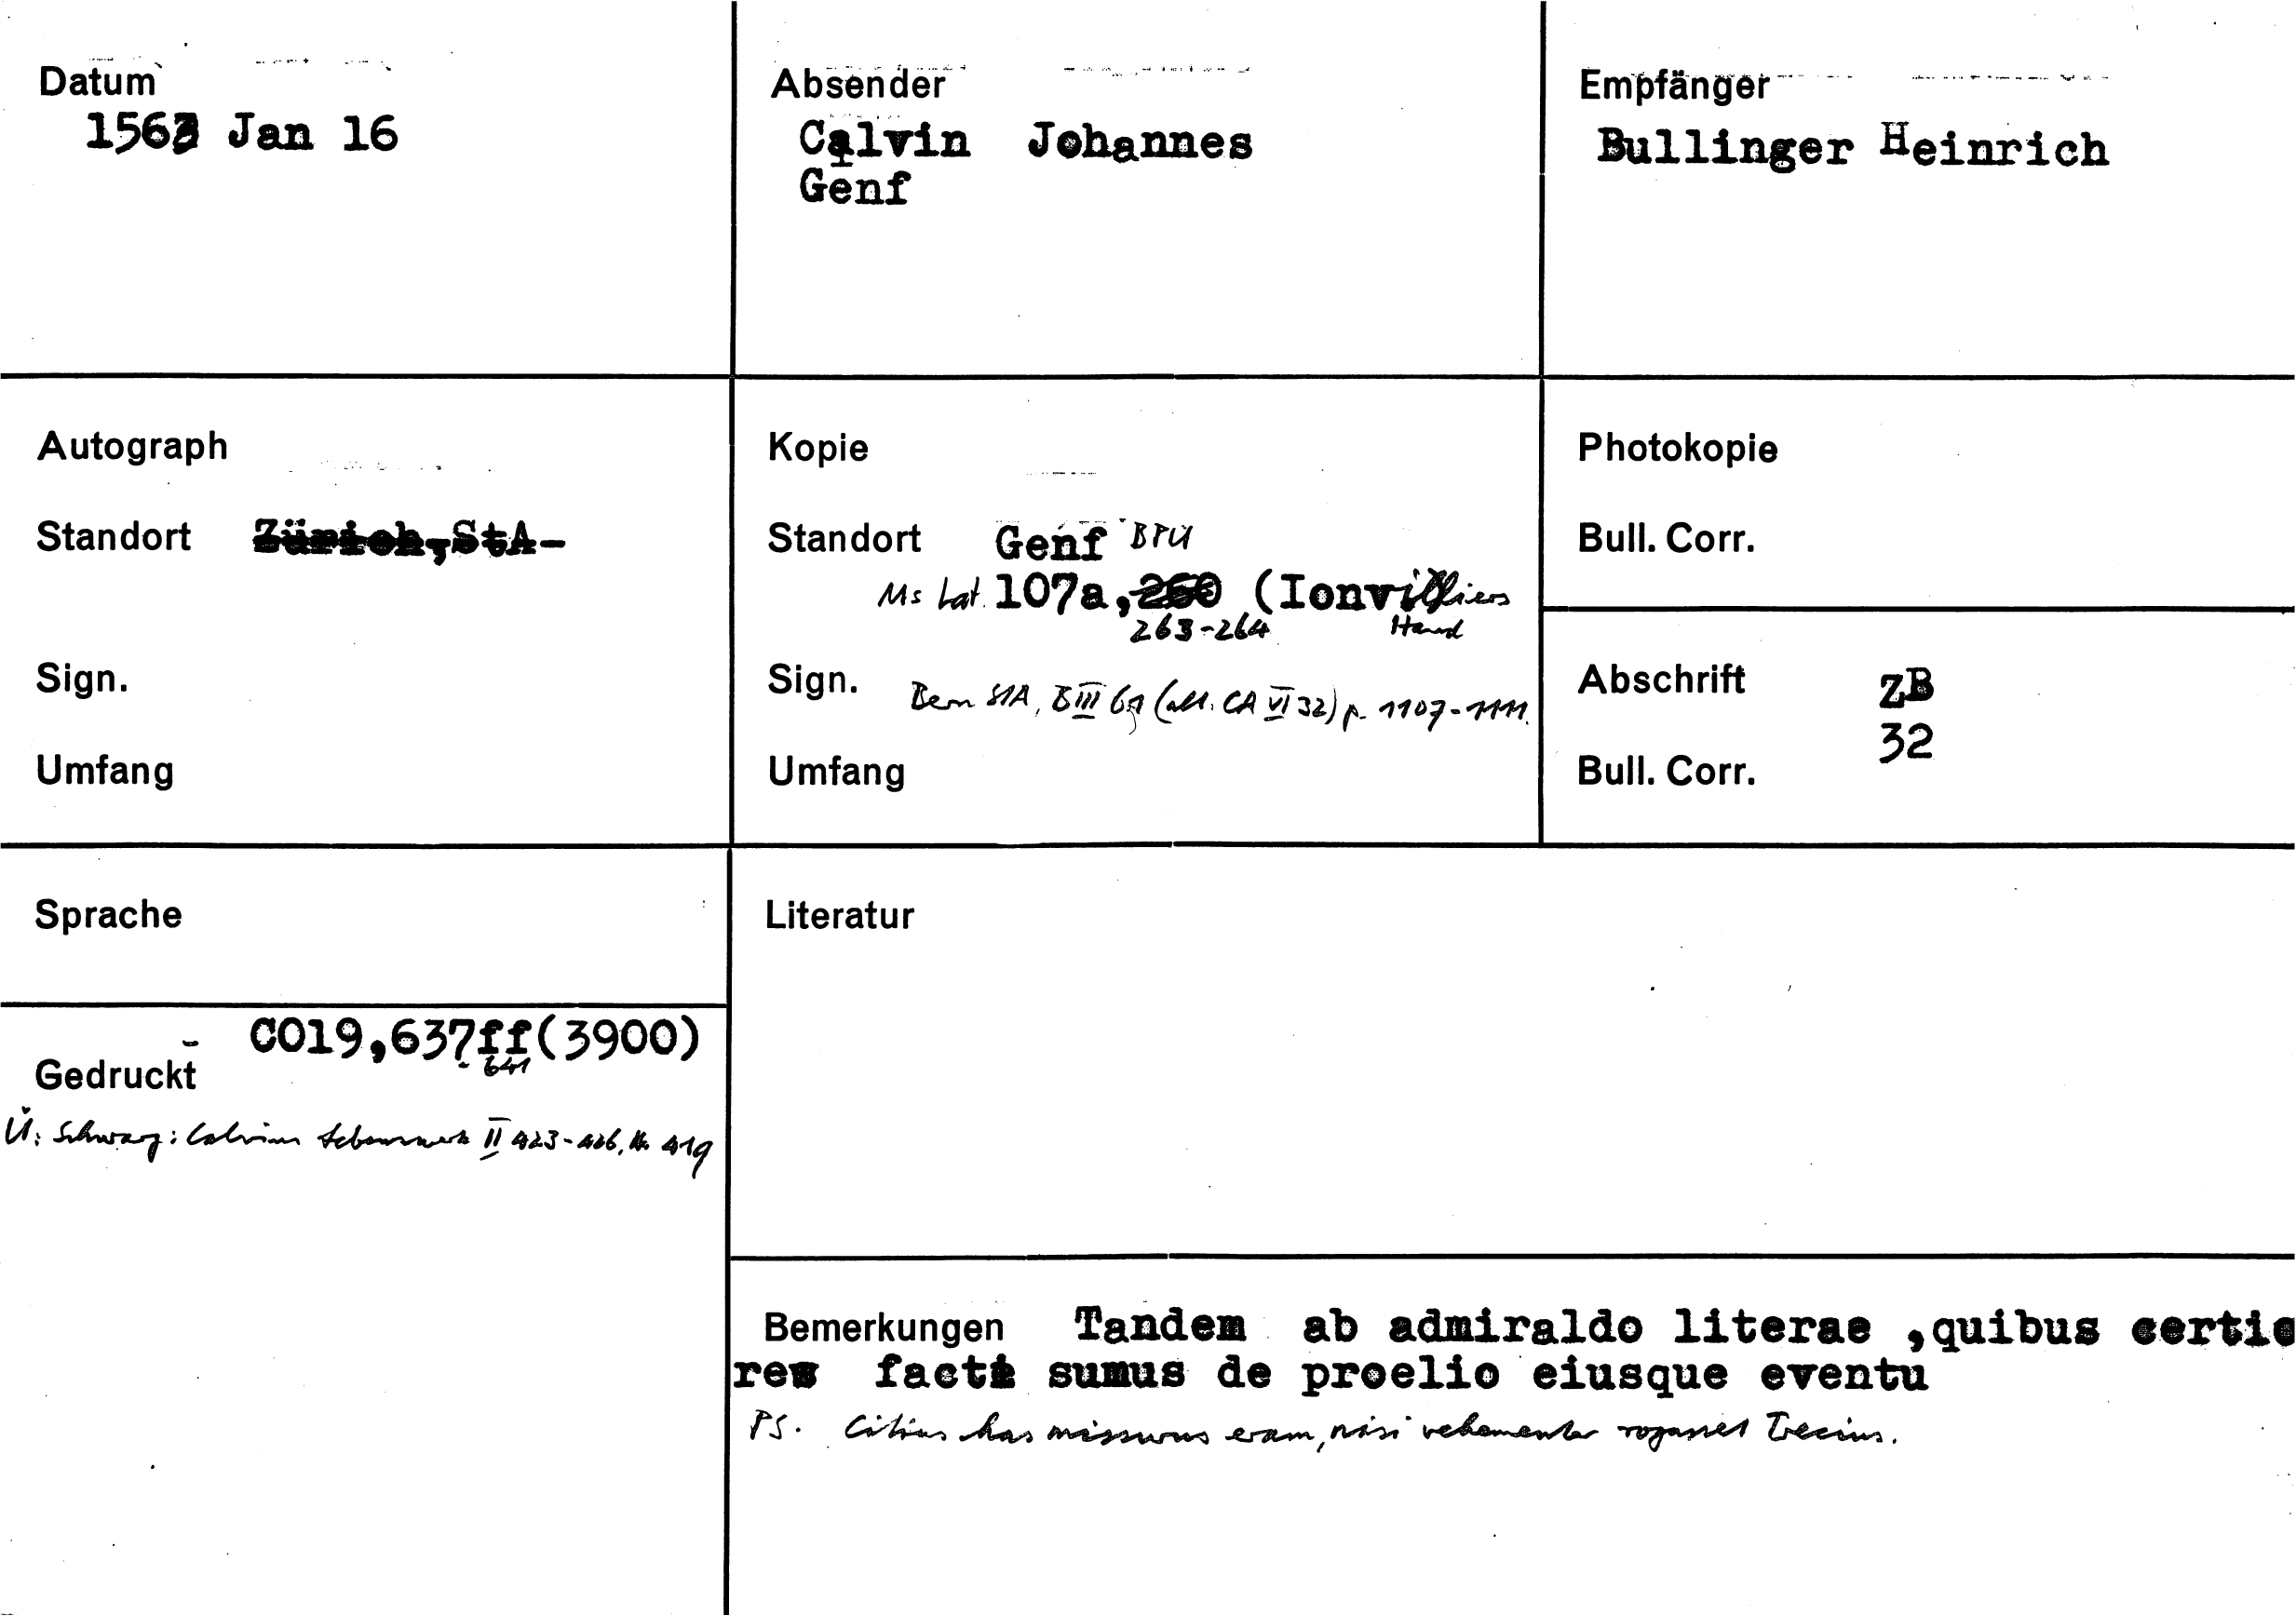 Datum
1563 Jan 16
Absender
Calvin Johannes
Genf
Empfänger
Bullinger Heinrich
Autograph
Standort Zürich, StA-
Sign.
Umfang
Kopie
Standort Genf BPU
Ms Lat. 107a, 260 (Ionvilliers
263-264 Hand
Sign. Bern StA, B III 69 (alt. CA VI 32) p. 1107-1111.
Umfang
Photokopie
Bull. Corr.
Abschrift ZB
32
Bull. Corr.
Sprache
Literatur
CO19,637ff(3900)
- 641
Gedruckt
Ü: Schwarz: Calvins Lebenswerk II 423-426, Nr. 419
Bemerkungen Tandem ab admiraldo literae ,quibus certio
res facti sumus de proelio eiusque eventu
PS. Citius has missurus eram, nisi vehementer rogasset Trecius.